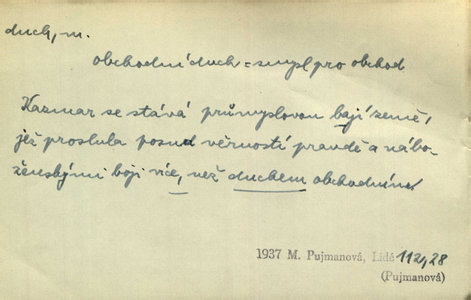 duch, m.
obchodní duch = smysl pro obchod
Kazmar se stává průmyslovou bají země,
jež proslula posud věrností pravdě a nábo-
ženskými boji více, než duchem obchodním.
1937 M. Pujmanová, Lidé 112, 28
(Pujmanová)